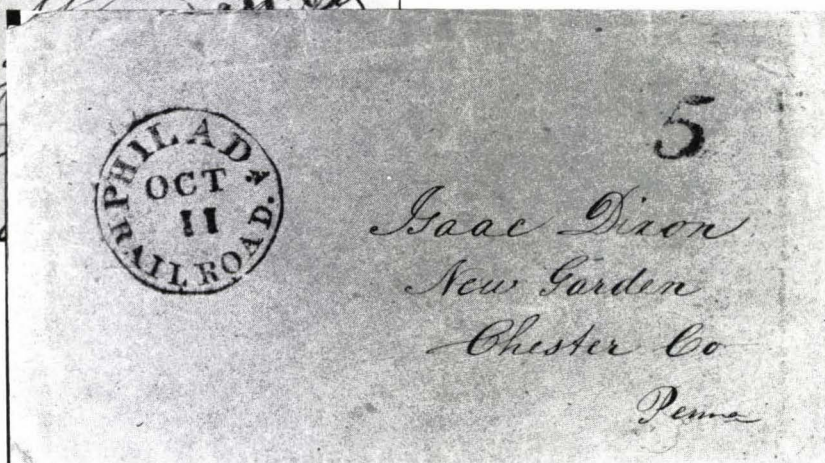 PHILADA
RAILROAD.
OCT
11
5
Isaac Dixon
New Garden
Chester Co
Penna